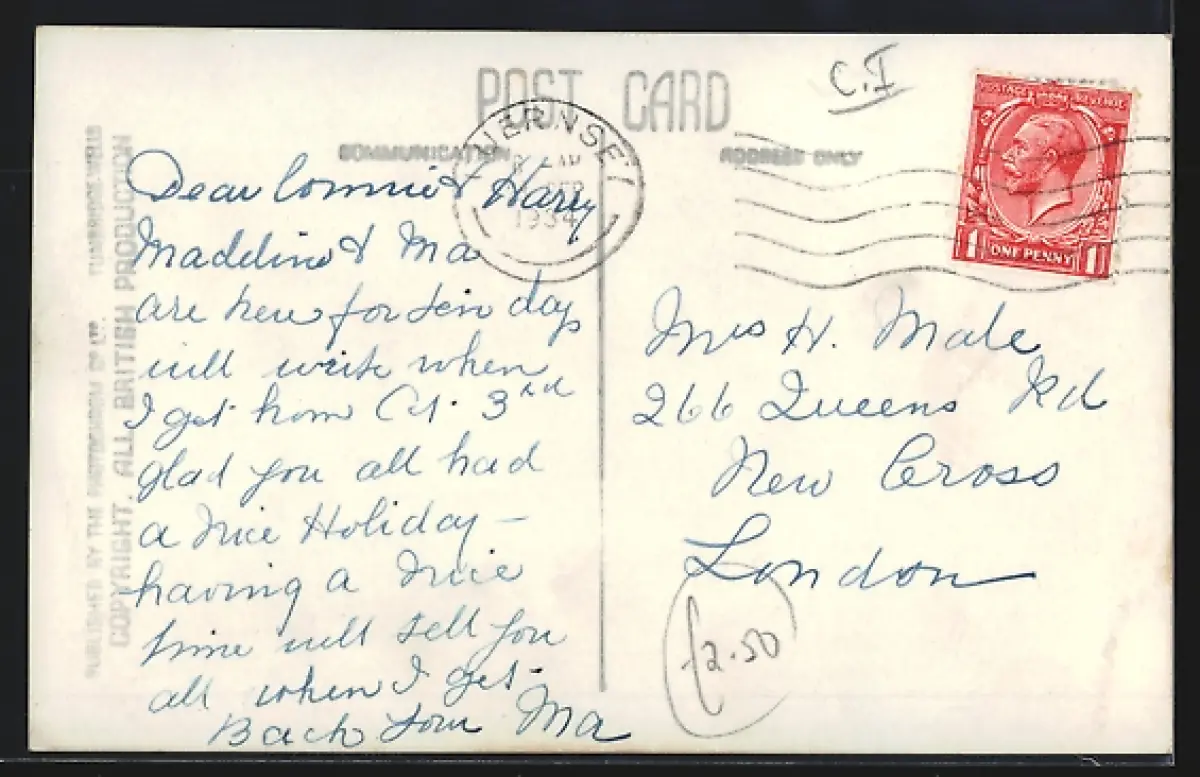 POST CARD
C.I
COMMUNICATION
ADDRESS ONLY
GUERNSEY
SEP
1934
POSTAGE REVENUE
1 ONE PENNY 1
PUBLISHED BY THE PHOTOCHROM CO LTD. TUNBRIDGE WELLS
COPYRIGHT. ALL BRITISH PRODUCTION
Dear Connie & Harry
Madeline & Ma
are here for ten days
will write when
I get home Oct. 3rd
glad you all had
a nice Holiday –
having a nice
time will tell you
all when I get
Back Ma
Mrs H. Male
266 Queens Rd
New Cross
London
£2.50